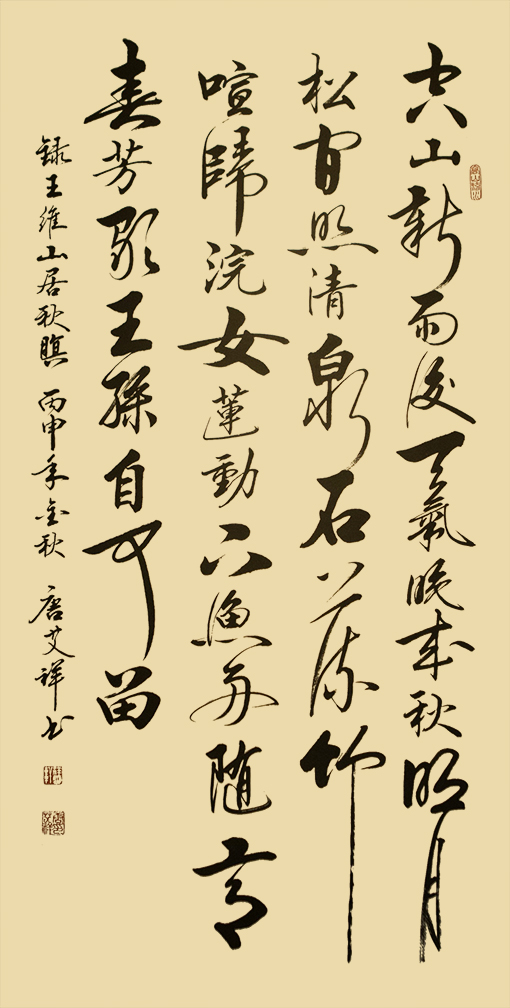 空山新雨後天氣晚來秋明月
松間照清泉石上流竹
喧歸浣女蓮動下漁舟随意
春芳歇王孫自可留
録王維山居秋暝 丙申年金秋 唐艾祥书